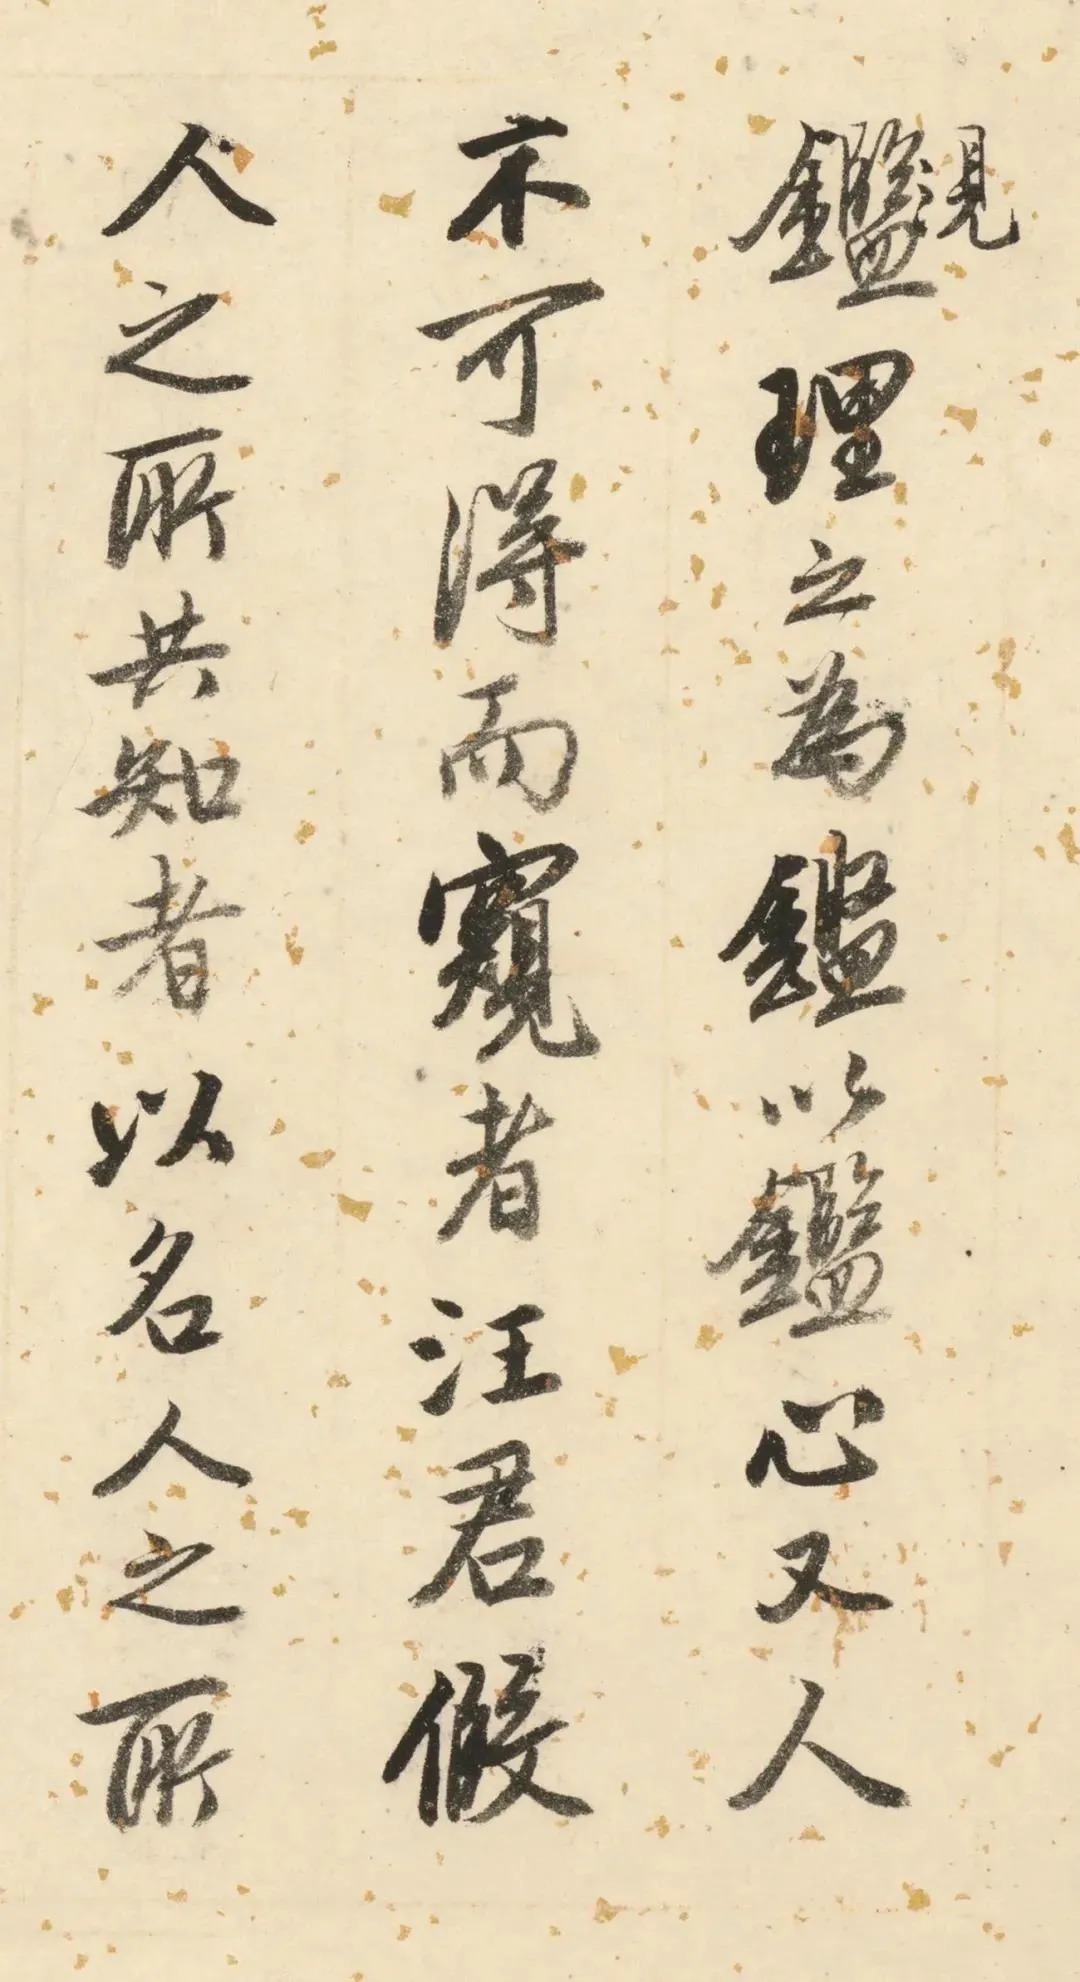 鑑見理之為鑑以鑑心又人
不可得而窺者汪君假
人之所共知者以名人之所